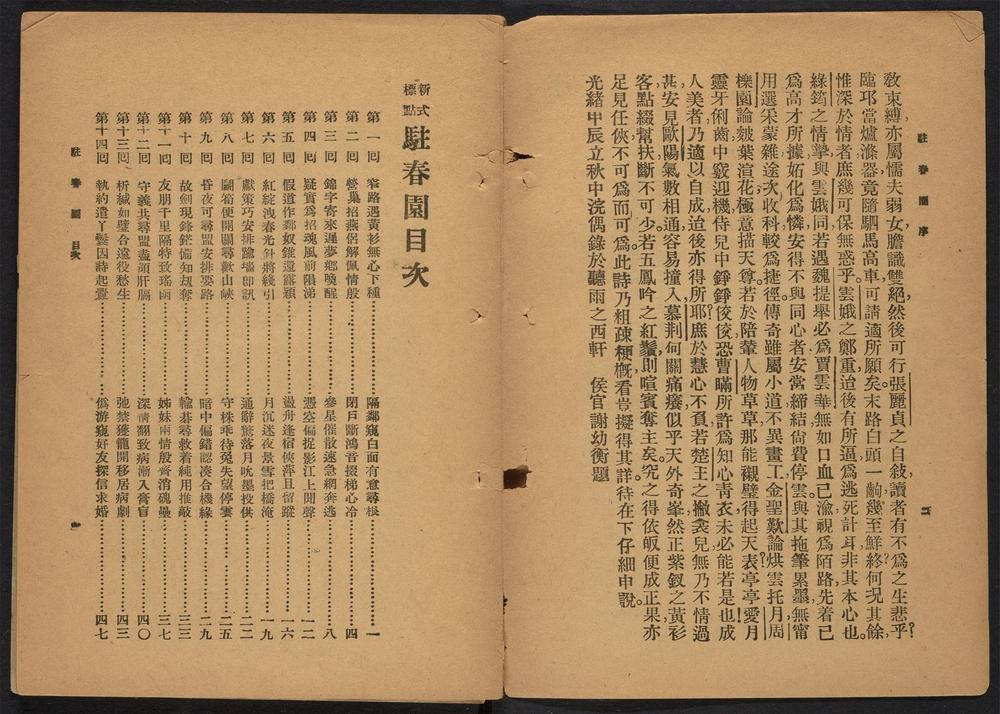 駐春園序
三
敎束縛亦屬懦夫弱女膽識雙絕然後可行張麗貞之自敍讀者有不爲之生悲乎?
臨邛當爐滌器竟隨駟馬高車可請適所願矣末路白頭一齣幾至鮮終何况其餘
惟深於情者庶幾可保無惑乎雲娥之鄭重迨後有所逼爲逃死計耳非其本心也
綠筠之情摯與雲娥同若遇魏提舉必爲賈雲華無如口血已渝視爲陌路先着已
爲高才所據妬化爲憐安得不與同心者安常締結尙費停雲與其拖筆累墨無甯
用選宋蒙雜途次收科較爲捷徑傳奇雖屬小道不異畫工金聖歎論烘雲托月周
櫟園論皴葉渲花極意描天尊若於陪輦人物草草那能襯璧得起天表亭亭愛月
靈牙俐齒中竅迎機侍兒中錚錚佼佼恐曹瞞所許爲知心靑衣未必能若是也成
人美者乃適以自成迨後亦得所耶庶於慧心不負若楚王之撇袭兒無乃不情過
甚安見歐陽氣數相通容易撞入慕荆何關痛癢似乎天外奇峯然正紫釵之黃衫
客點綴幫扶斷不可少若五鳳吟之紅鬚則喧賓奪主矣究之得依皈便成正果亦
足見任俠不可爲而可爲此詩乃粗疎梗槪看豈擬得其詳待在下仔細申說
光緖甲辰立秋中浣偶錄於聽雨之西軒 侯官謝幼衡題
新式標點 駐春園目次
第一回 窄路遇黃衫無心下種 隔鄰窺白面有意尋根 一
第二回 營巢招燕侶解佩情殷 閉戶斷鴻音援梯心冷 四
第三回 錦字寄來遲夢鄉喚醒 參星催散速急網奔逃 八
第四回 疑實爲招魂風前隕涕 憑空偏捉影江上聞聲 一二
第五回 假道作鄰奴錐還露穎 盪舟逢宿俠萍且留蹤 一六
第六回 紅綻洩春光針將綫引 月沉迷夜景雪把橋淹 一九
第七回 獻策巧安排踰墻卽訊 通辭驚落月吮墨投供 二二
第八回 鬬筍便開關尋歡山峽 守株乖待兔失望停雲 二五
第九回 昏夜可尋盟安排要路 暗中偏錯認凑合機緣 二九
第十回 故劍現鋒鋩備知刼奪 輪碁尋救着純用推敲 三三
第十一回 友朋千里隔特致瑤函 姊妹兩情殷齊消磈壘 三七
第十二回 守義共尋盟盡傾肝膈 深情翻致病漸入膏肓 四〇
第十三回 析緘如璧合遠役愁生 弛禁獲籠開移居病劇 四三
第十四回 執約遣丫鬟因詩起釁 僞游窺好友探信求婚 四七
駐春園 目次
一